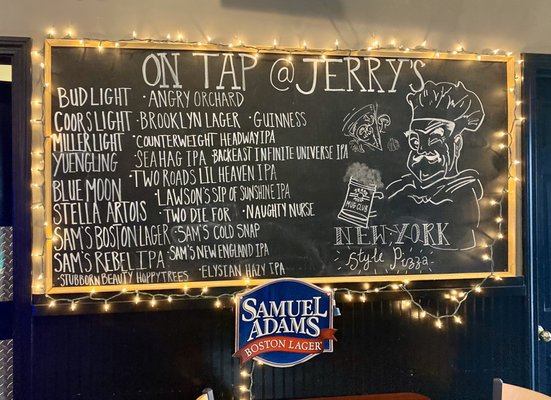 ON TAP @ JERRY'S
BUD LIGHT · ANGRY ORCHARD
COORS LIGHT · BROOKLYN LAGER · GUINNESS
MILLER LIGHT · COUNTERWEIGHT HEADWAY IPA
YUENGLING · SEAHAG IPA · BACK EAST INFINITE UNIVERSE IPA
· TWO ROADS LIL HEAVEN IPA
BLUE MOON · LAWSON'S SIP OF SUNSHINE IPA
STELLA ARTOIS · TWO DIE FOR · NAUGHTY NURSE
SAM'S BOSTON LAGER · SAM'S COLD SNAP
SAM'S REBEL IPA · SAM'S NEW ENGLAND IPA
· STUBBORN BEAUTY HOPPY TREES · ELYSIAN HAZY IPA
MUG CLUB
NEW YORK
Style Pizza
SAMUEL
ADAMS
BOSTON LAGER